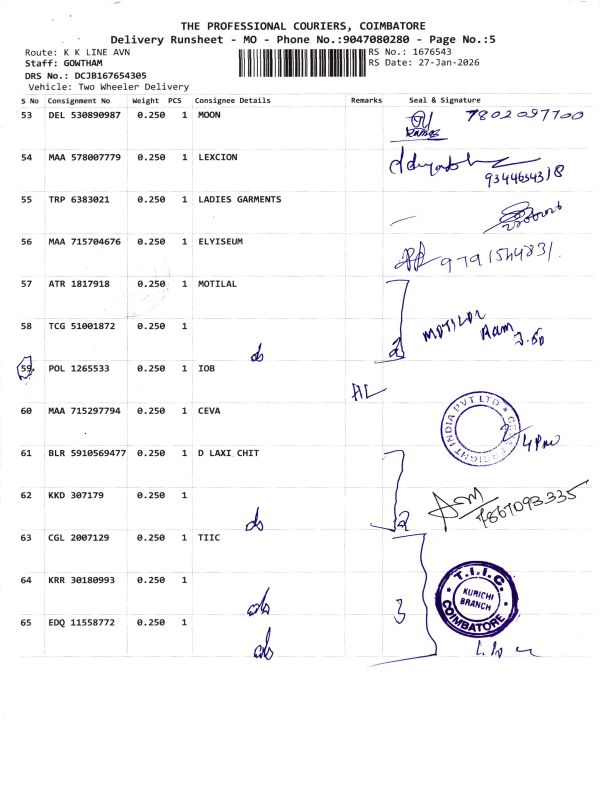 THE PROFESSIONAL COURIERS, COIMBATORE
Delivery Runsheet - MO - Phone No.:9047080280 - Page No.:5
Route: K K LINE AVN
RS No.: 1676543
Staff: GOWTHAM
RS Date: 27-Jan-2026
DRS No.: DCJB167654305
Vehicle: Two Wheeler Delivery
S No Consignment No Weight PCS Consignee Details Remarks Seal & Signature
53 DEL 530890987 0.250 1 MOON 7802097700
54 MAA 578007779 0.250 1 LEXCION
9344654318
55 TRP 6383021 0.250 1 LADIES GARMENTS
56 MAA 715704676 0.250 1 ELYISEUM 9791544831.
57 ATR 1817918 0.250 1 MOTILAL
MOTILAL
Ram
58 TCG 51001872 0.250 1
do 2
59 POL 1265533 0.250 1 IOB
HL
60 MAA 715297794 0.250 1 CEVA
INDIA PVT LTD
4 Pm
61 BLR 5910569477 0.250 1 D LAXI CHIT
62 KKD 307179 0.250 1
7867093335
do 2
63 CGL 2007129 0.250 1 TIIC
T.I.I.C.
KURICHI
BRANCH
COIMBATORE
64 KRR 30180993 0.250 1
do 3
65 EDQ 11558772 0.250 1
do